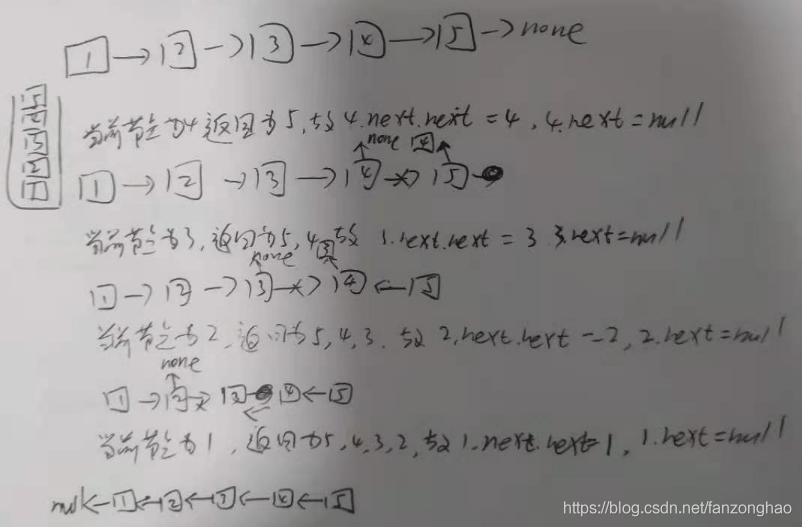 1 → 2 → 3 → 4 → 5 → none
5
4
3
2
1
当前节点为4返回为5,故4.next.next = 4, 4.next = null
none 4
1 → 2 → 3 → 4 → 5
当前节点为3,返回为5,4 故 1.next.next = 3 3.next=null
none 3
1 → 2 → 3 → 4 ← 5
当前节点为2,返回为5,4,3. 故 2.next.next = 2, 2.next=null
none
1 → 2 → 3 4 ← 5
当前节点为1,返回为5,4,3,2,故1.next.next=1, 1.next=null
null ← 1 ← 2 ← 3 ← 4 ← 5
https://blog.csdn.net/fanzonghao